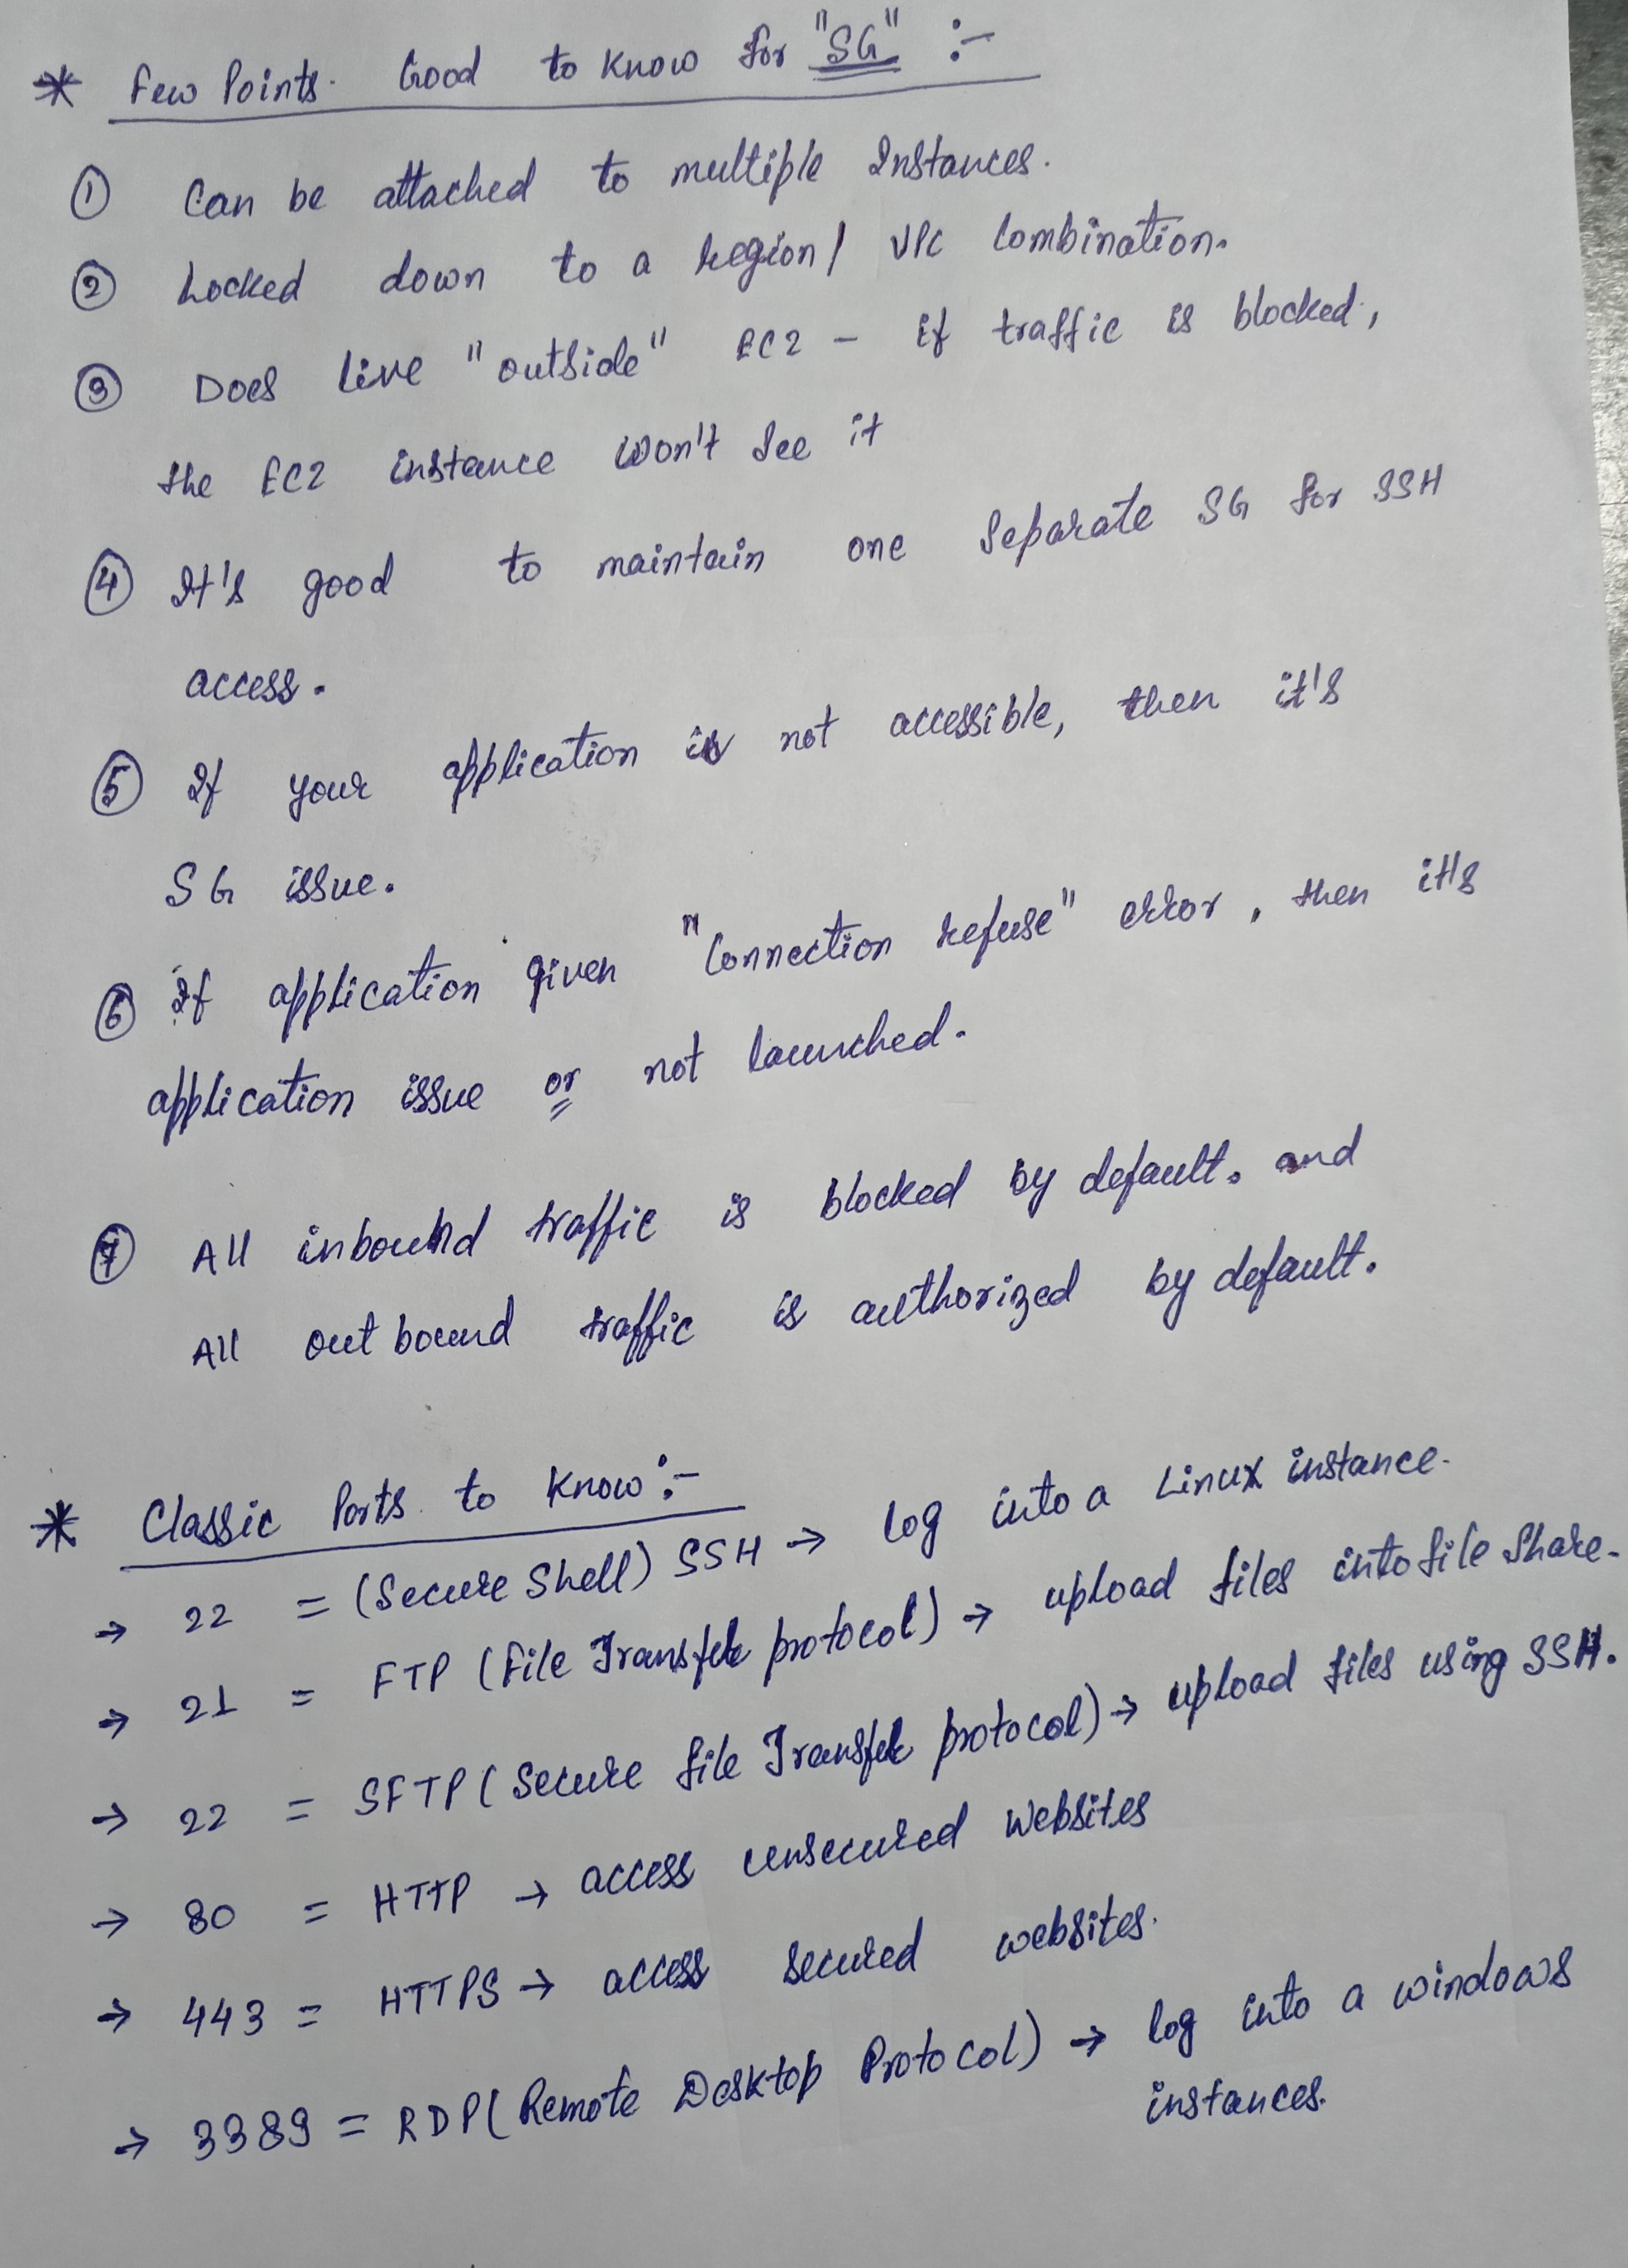 * Few Points. Good to know for "SG" :-
① Can be attached to multiple Instances.
② Locked down to a region/ VPC Combination.
③ Does live "outside" EC2 - if traffic is blocked,
the EC2 instance won't see it
④ It's good to maintain one Separate SG for SSH
access.
⑤ If your application is not accessible, then it's
SG issue.
⑥ If application given "Connection refuse" error, then it's
application issue or not launched.
⑦ All inbound traffic is blocked by default. and
All out bound traffic is authorized by default.
* Classic Ports to know :-
→ 22 = (Secure Shell) SSH → log into a Linux instance.
→ 21 = FTP (File Transfer protocol) → upload files into file Share.
→ 22 = SFTP (Secure file Transfer protocol) → upload files using SSH.
→ 80 = HTTP → access unsecured Websites
→ 443 = HTTPS → access secured websites.
→ 3389 = RDP (Remote Desktop Protocol) → log into a windows
instances.